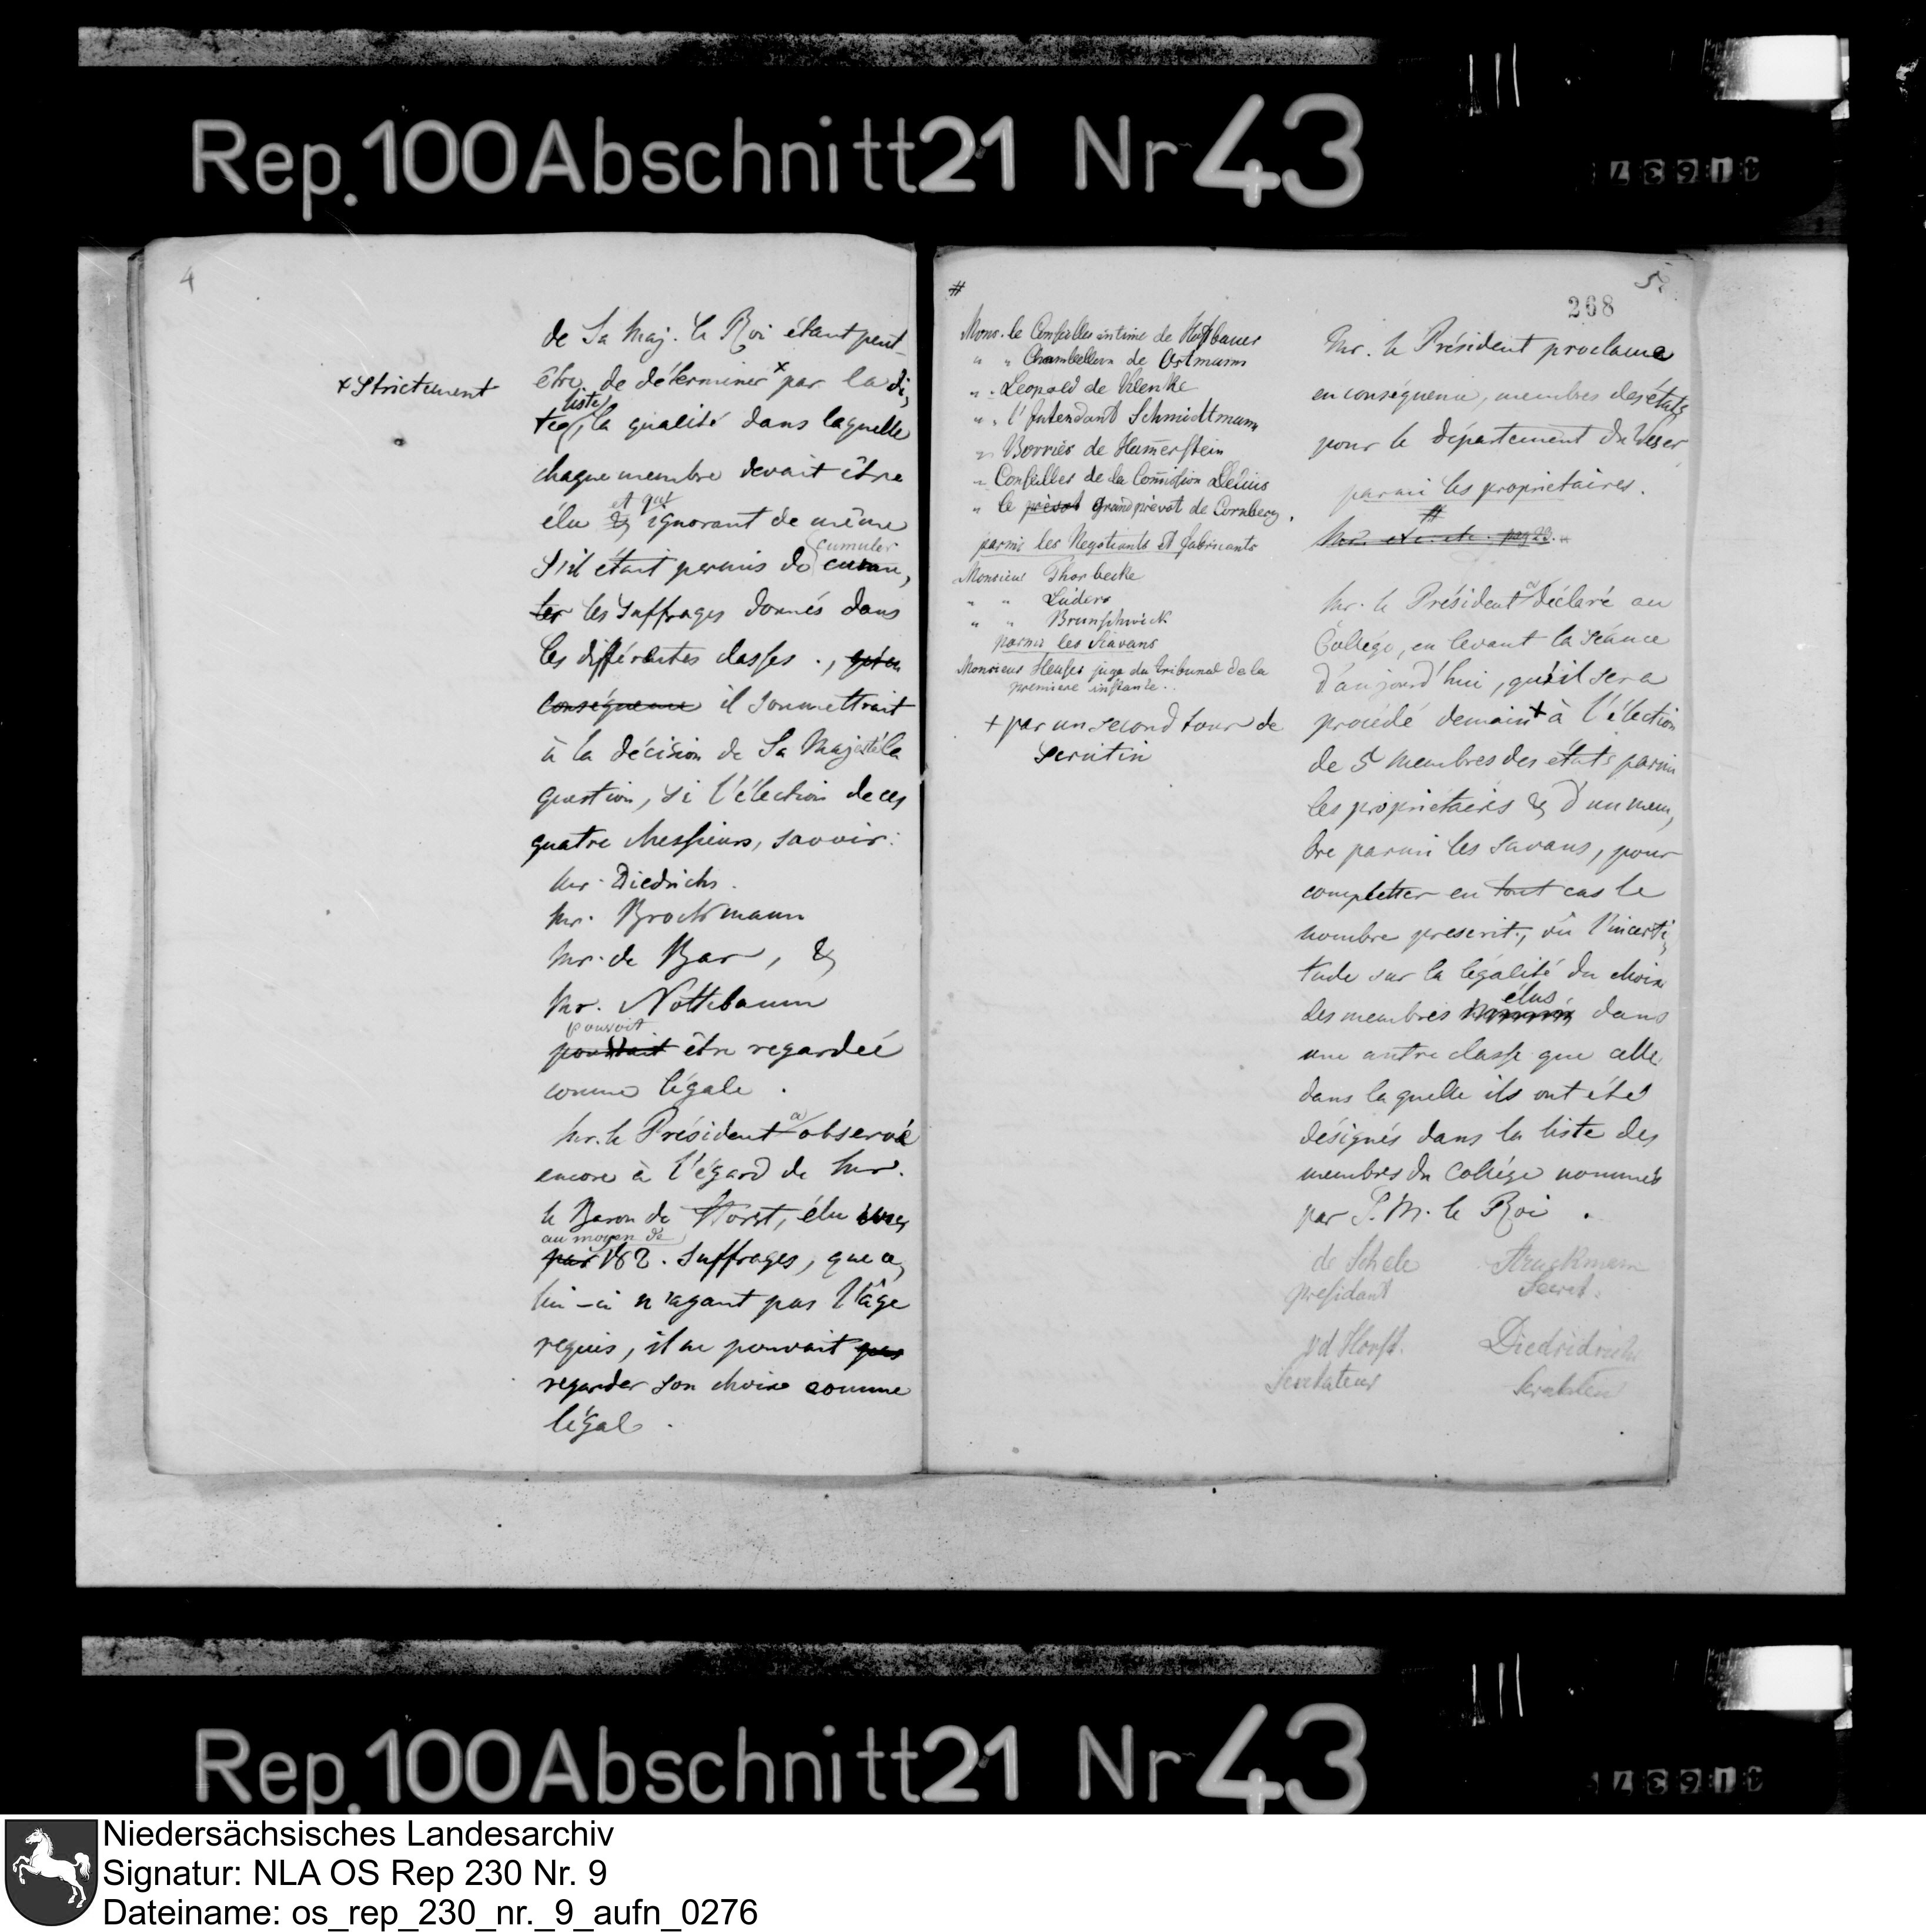 Rep. 100 Abschnitt 21 Nr 43
4
de Sa Maj. le Roi étant peut
être de déterminer x par la di,
x Strictement
liste
tes, la qualité dans laquelle
chaque membre devait être
et que
élu & ignorant de même
cumuler
s'il était permis de cumu,
ler les suffrages donnés dans
les différentes classes .,
conséquence il soumettrait
à la décision de Sa Majesté la
question, si l'élection de ces
quatre Messieurs, savoir:
Mr. Diedrichs.
Mr. Brockmann
Mr. de Bar, &
Mr. Nottebaum
pouvoit
pourrait être regardée
comme légale.
a
Mr. le Président observé
encore à l'égard de Mr.
le Baron de Horst, élu avec
au moyen de
par 182. suffrages, que ce,
lui-ci n'ayant pas l'âge
requis, il ne pouvait pas
regarder son choix comme
légal.
5.
268
#
Mons. le Conseiller intime de Huffbauer
" " Chambellan de Ostmann
" . Leopold de Vlenke
" . l'Intendant Schmidtmann
" Borries de Hamerstein
" Conseiller de la Comission
" le prévot Grand prévot de Cornberg.
parmis les Negotiants et fabricants
Monsieur Thorbecke
" " Lüders
" " Brunschwick
parmi les Scavans
Monsieur Heuser juge du tribunal de la
premiere instante.
+ par un second tour de
scrutin
Mr. le Président proclame
en conséquence, membres des états
pour le département du Weser
parmi les propriétaires.
#
Mr. etc. etc. pag 23.
a
Mr. le Président déclaré au
Collége, en levant la séance
d'aujourd'hui, qu'il sera
procédé demain + à l'élection
de 5 membres des états parmi
les propriétaires & d'un mem,
bre parmi les savans, pour
completter en tout cas le
nombre prescrit, vû l'incerti,
tude sur la légalité du choix
élus
des membres dans
une autre classe que celle
dans laquelle ils ont été
désignés dans la liste des
membres du Collége nommés
par S. M. le Roi.
de Schele Struckmann
president Secret.
vd Horst. Diedridrichs
Scrutateur Scrutateur
Rep. 100 Abschnitt 21 Nr 43
Niedersächsisches Landesarchiv
Signatur: NLA OS Rep 230 Nr. 9
Dateiname: os_rep_230_nr._9_aufn_0276